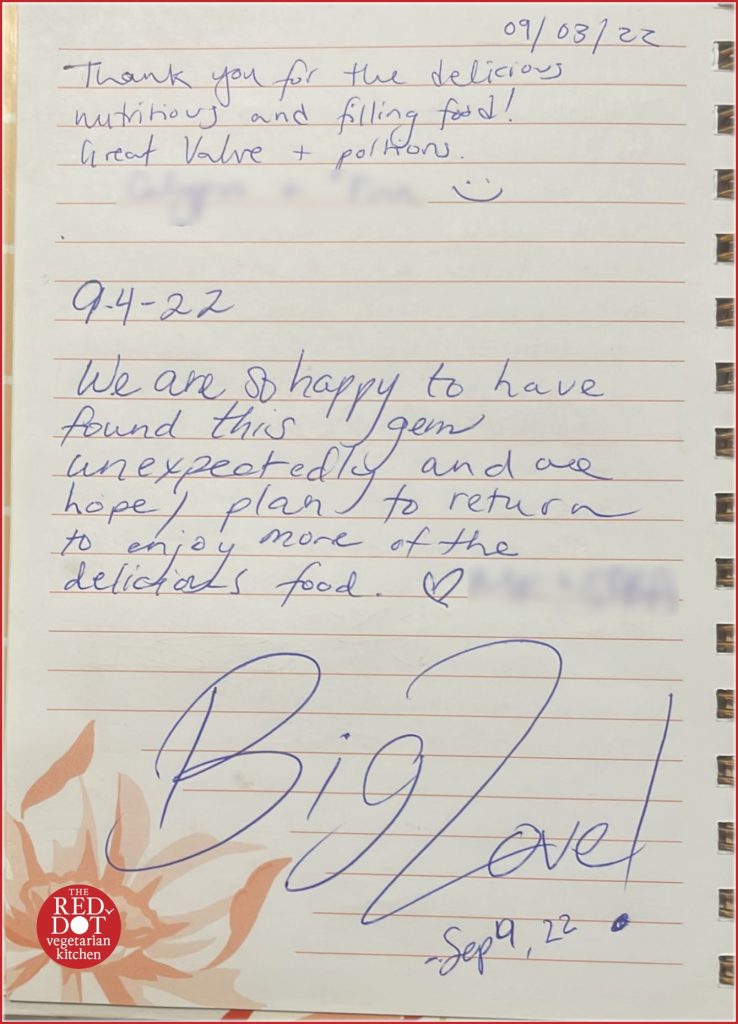 09/03/22
Thank you for the delicious
nutritious and filling food!
Great Value + portions.
9-4-22
We are so happy to have
found this gem
unexpectedly and we
hope/ plan to return
to enjoy more of the
delicious food.
Big Love!
Sep 19, 22
THE
RED
DOT
vegetarian
kitchen